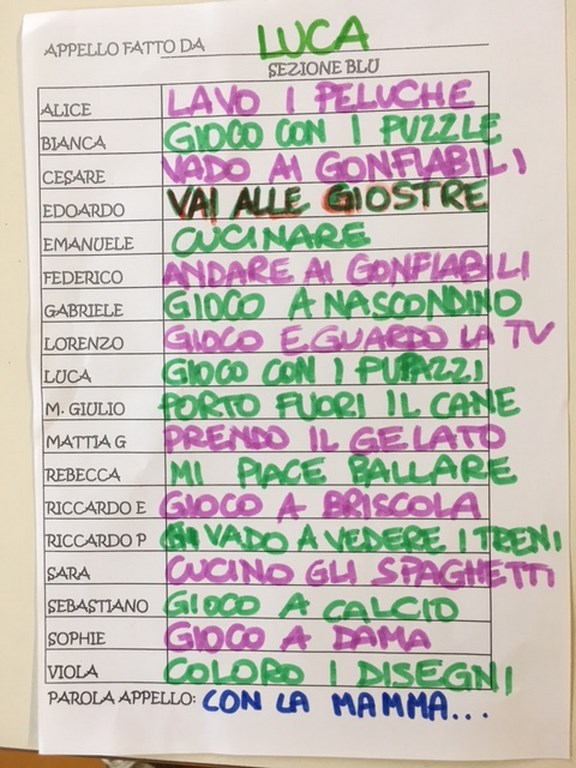 APPELLO FATTO DA LUCA
SEZIONE BLU
ALICE LAVO I PELUCHE
BIANCA GIOCO CON I PUZZLE
CESARE VADO AI GONFIABILI
EDOARDO VAI ALLE GIOSTRE
EMANUELE CUCINARE
FEDERICO ANDARE AI GONFIABILI
GABRIELE GIOCO A NASCONDINO
LORENZO GIOCO E GUARDO LA TV
LUCA GIOCO CON I PUPAZZI
M. GIULIO PORTO FUORI IL CANE
MATTIA G PRENDO IL GELATO
REBECCA MI PIACE BALLARE
RICCARDO E GIOCO A BRISCOLA
RICCARDO P VADO A VEDERE I TRENI
SARA CUCINO GLI SPAGHETTI
SEBASTIANO GIOCO A CALCIO
SOPHIE GIOCO A DAMA
VIOLA COLORO I DISEGNI
PAROLA APPELLO: CON LA MAMMA...